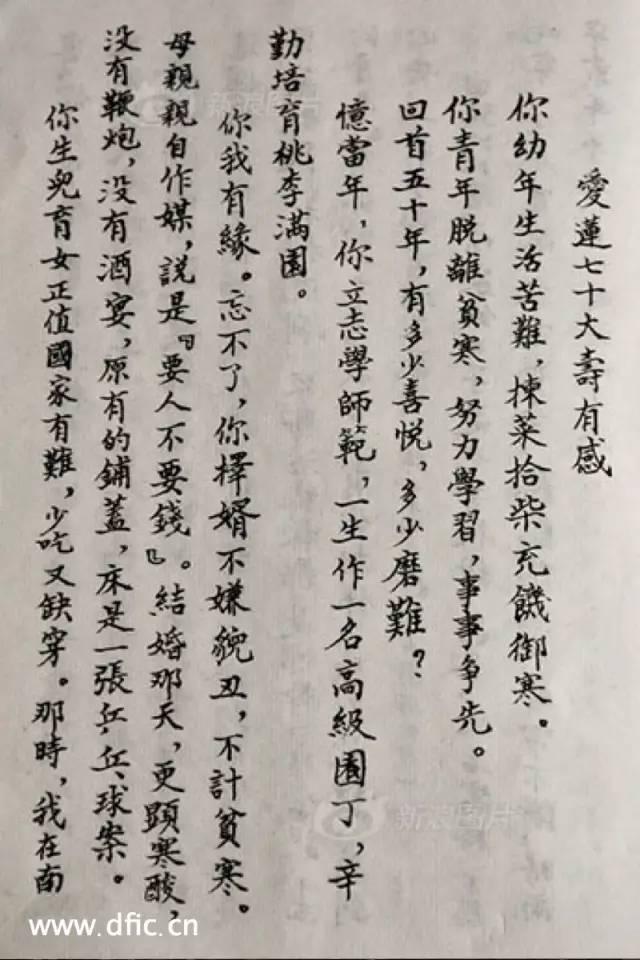 愛蓮七十大壽有感
你幼年生活苦難，揀菜拾柴充饑御寒。
你青年脱離貧寒，努力學習，事事争先。
回首五十年，有多少喜悦，多少磨難？
憶當年，你立志學師範，一生作一名高級園丁，辛
勤培育桃李滿園。
你我有緣。忘不了，你擇婿不嫌貌丑，不計貧寒。
母親親自作媒，説是『要人不要錢』。結婚那天，更顕寒酸，
没有鞭炮，没有酒宴，原有的鋪蓋，床是一張乒乓球案。
你生兒育女正值國家有難，少吃又缺穿。那時，我在南
新浪图片
新浪图片
www.dfic.cn